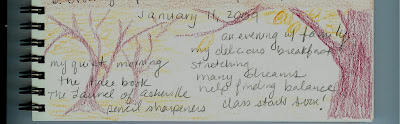 January 11, 2009
an evening of family
my delicious breakfast
my quiet morning
stretching
the tree book
many dreams
The Laurel of Asheville
help finding balance
pencil sharpeners
class starts soon!